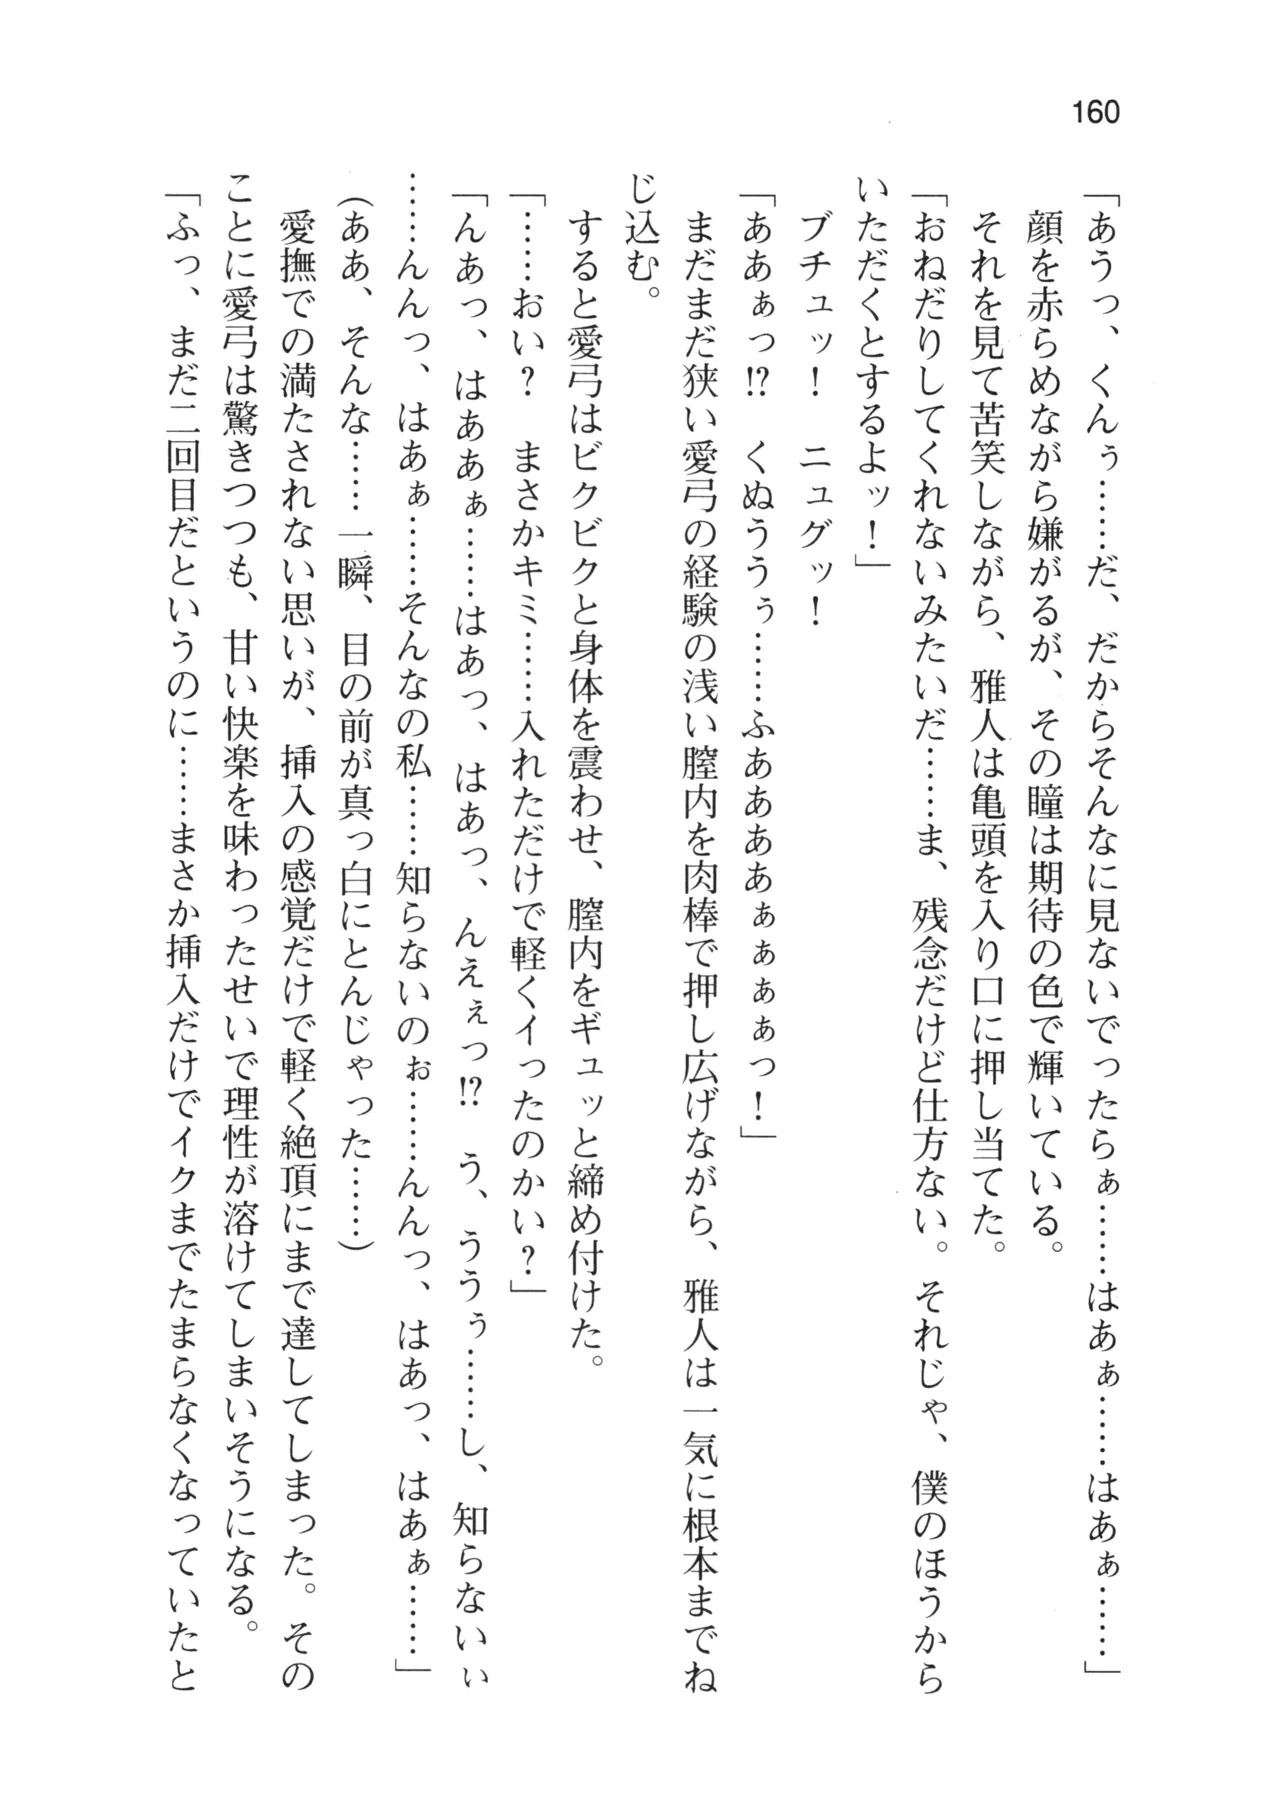 160
「あうっ、くんぅ……だ、だからそんなに見ないでったらぁ……はあぁ……はあぁ……」
顔を赤らめながら嫌がるが、その瞳は期待の色で輝いている。
それを見て苦笑しながら、雅人は亀頭を入り口に押し当てた。
「おねだりしてくれないみたいだ……ま、残念だけど仕方ない。それじゃ、僕のほうから
いただくとするよッ！」
ブチュッ！　ニュグッ！
「ああぁっ!?　くぬううぅ……ふああああぁぁぁぁっ！」
まだまだ狭い愛弓の経験の浅い膣内を肉棒で押し広げながら、雅人は一気に根本までね
じ込む。
すると愛弓はビクビクと身体を震わせ、膣内をギュッと締め付けた。
「……おい？　まさかキミ……入れただけで軽くイったのかい？」
「んあっ、はああぁ……はあっ、はあっ、んえぇっ!?　う、ううぅ……し、知らないぃ
……んんっ、はあぁ……そんなの私……知らないのぉ……んんっ、はあっ、はあぁ……」
(ああ、そんな……一瞬、目の前が真っ白にとんじゃった……)
愛撫での満たされない思いが、挿入の感覚だけで軽く絶頂にまで達してしまった。その
ことに愛弓は驚きつつも、甘い快楽を味わったせいで理性が溶けてしまいそうになる。
「ふっ、まだ二回目だというのに……まさか挿入だけでイクまでたまらなくなっていたと